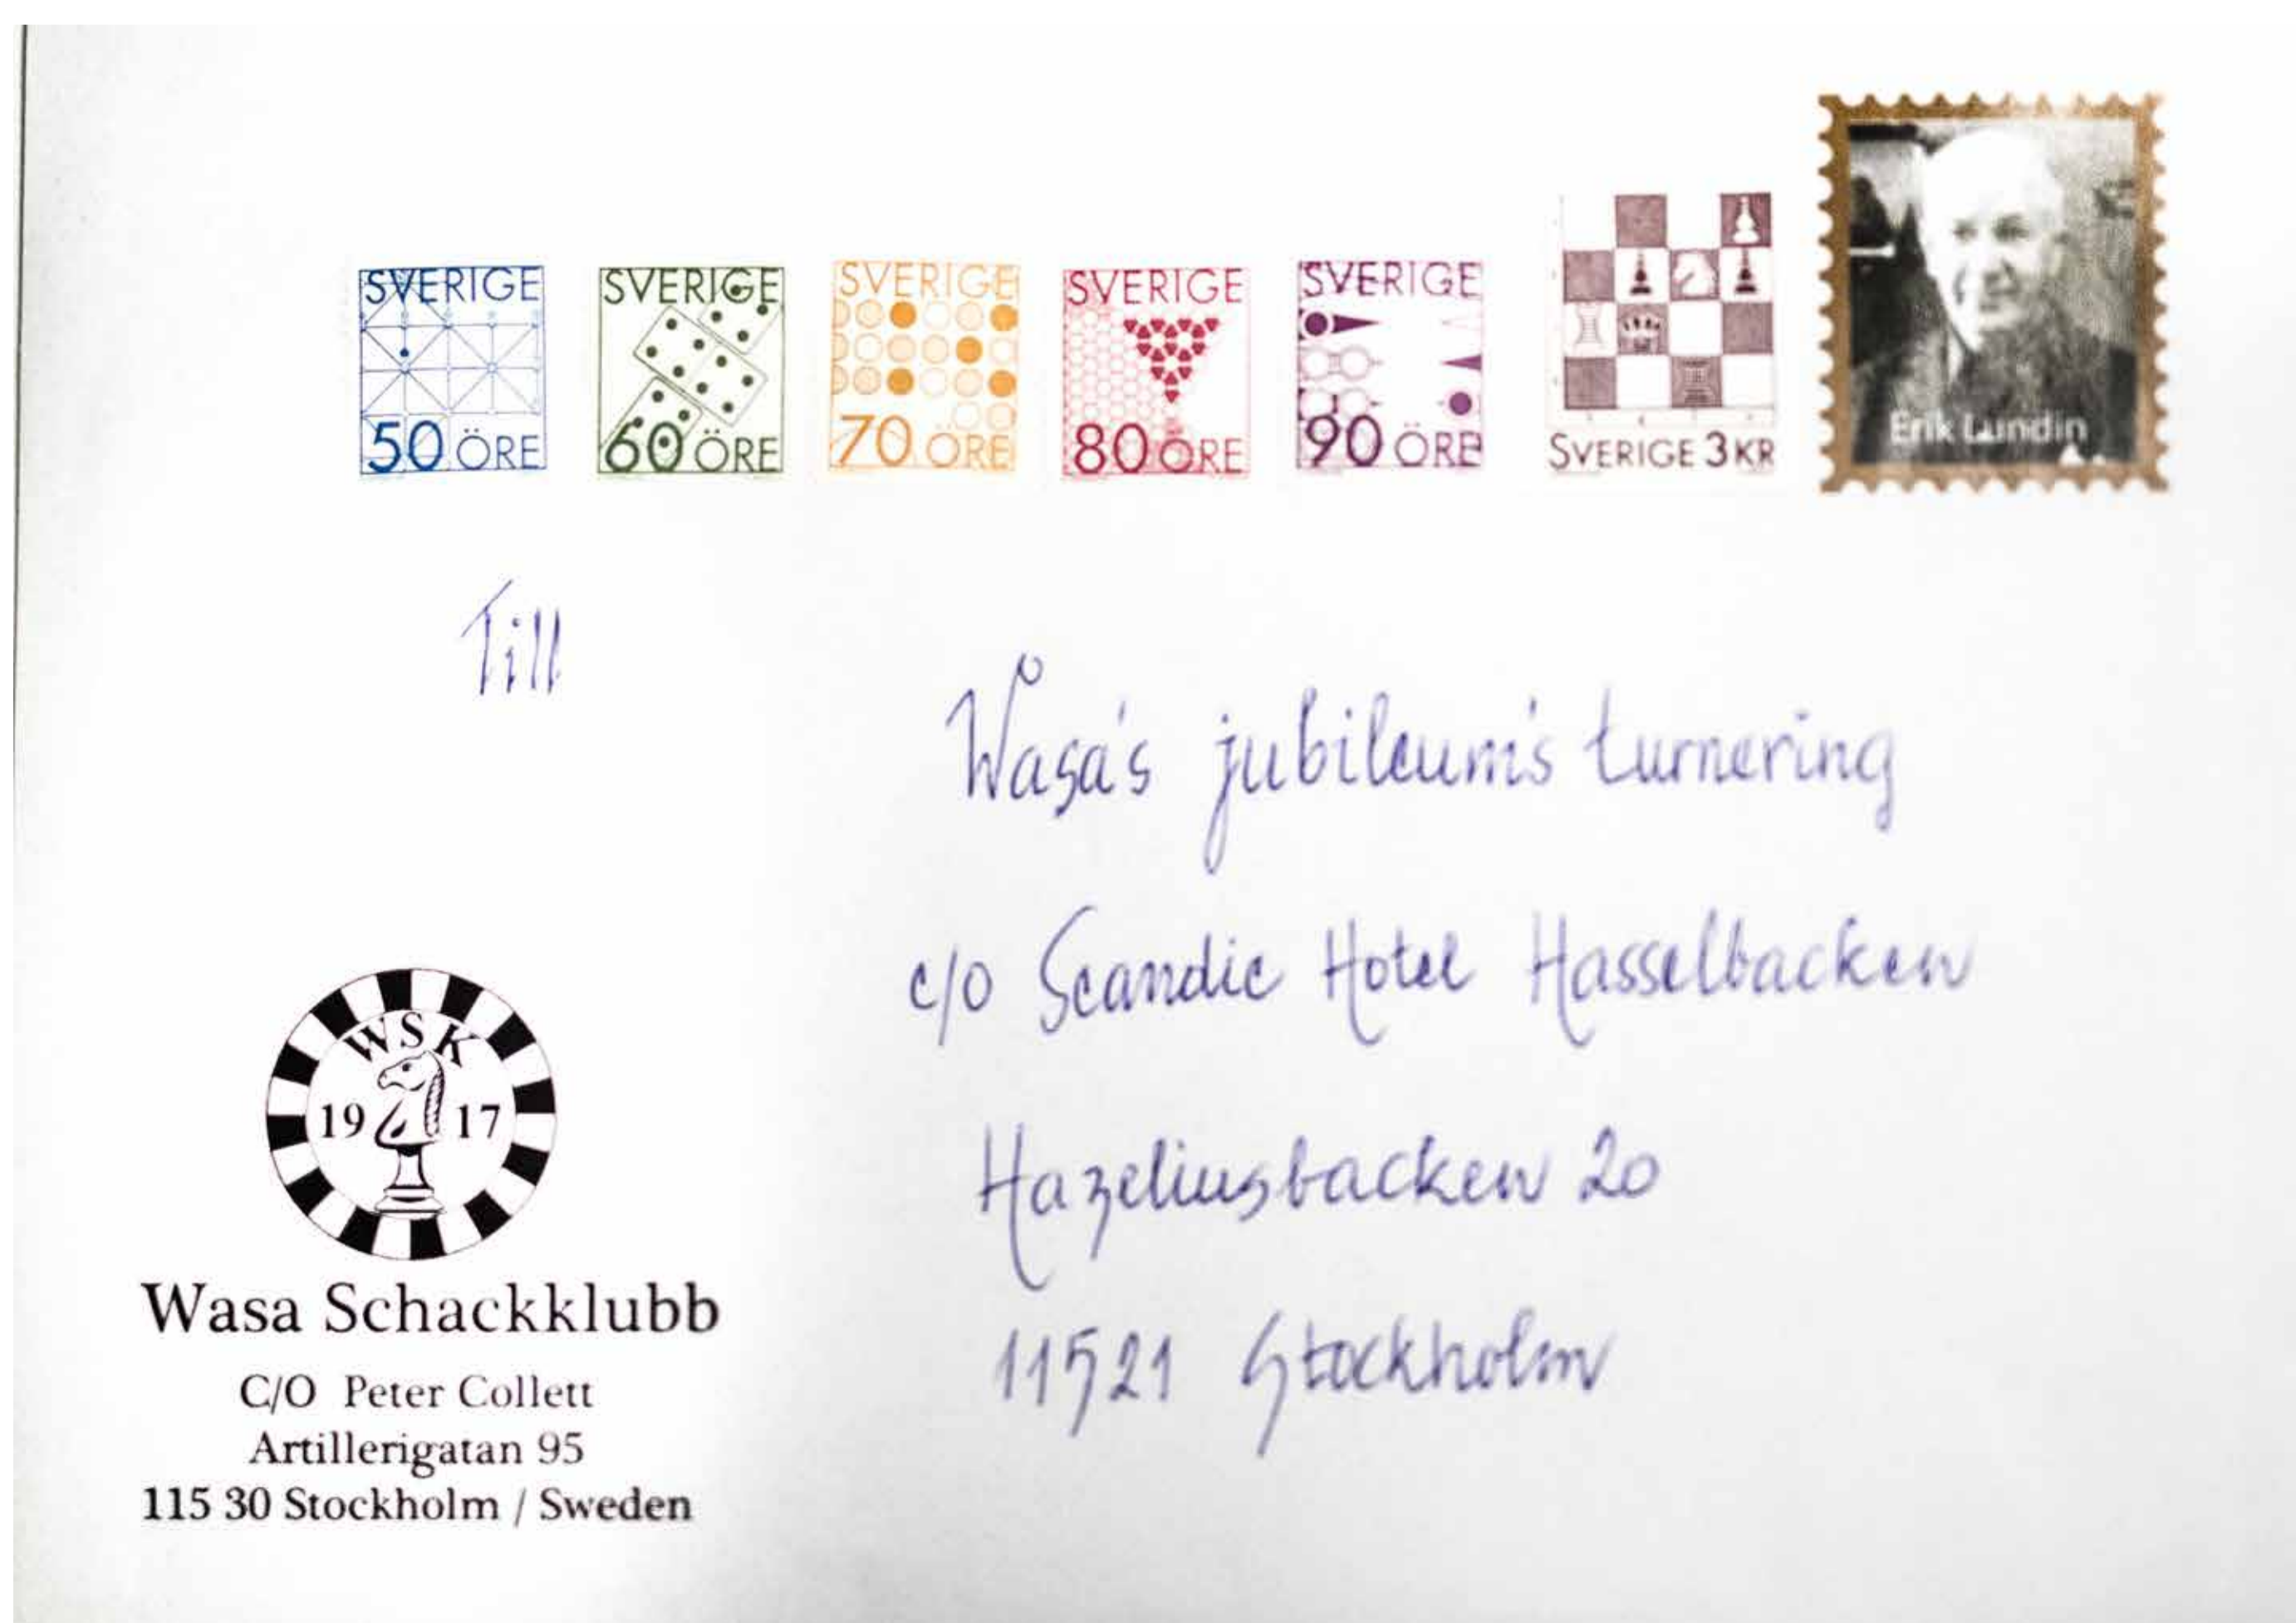 SVERIGE
50 ÖRE
SVERIGE
60 ÖRE
SVERIGE
70 ÖRE
SVERIGE
80 ÖRE
SVERIGE
90 ÖRE
SVERIGE 3 KR
Erik Lundin
Till
Wasa's jubileum's turnering
c/o Scandic Hotel Hasselbacken
Hazeliusbacken 20
11521 Stockholm
WSK
19 17
Wasa Schackklubb
C/O Peter Collett
Artillerigatan 95
115 30 Stockholm / Sweden